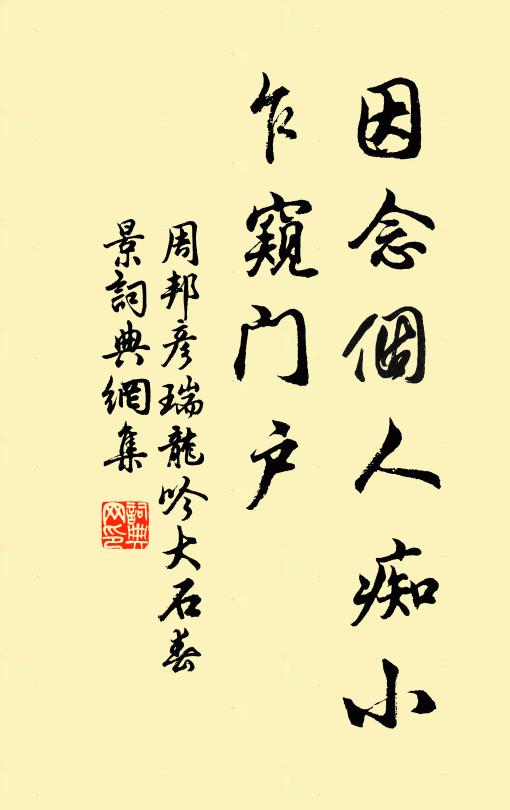 因念個人痴小
乍窺門户
周邦彦瑞龍吟大石春
景詞典網集
詞典网印